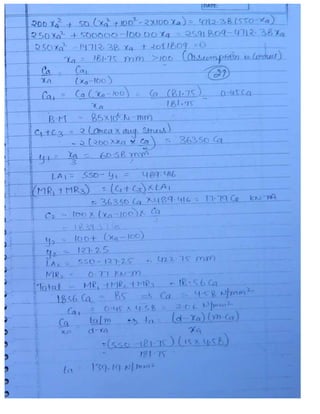 200 xa² + 50 (xa² + 100² - 2×100 xa) = 4712.38 (550-xa)
250xa² + 500000 - 10000 xa = 2591809 - 4712.38xa
xa = 181.75 mm > 100 (Assumption is correct)
Ca/xa = Ca1/(xa-100)
(29)
Ca1 = Ca (xa-100)/xa = Ca (81.75)/181.75 = 0.45Ca
B.M = 85×10⁶ N-mm
C1+C3 = 2 (area × avg. stress)
= 2 (200×xa × Ca/2) = 36350 Ca
y1 = xa/3 = 60.58 mm
LA1 = 550 - y1 = 489.416
(MR1 + MR3) = (C1+C3) × LA1
= 36350 Ca × 489.416 = 17.79 Ca kN-m
C2 = 100 × (xa-100) × Ca
y2 = 100 + (xa-100)
y2 = 127.25
LA2 = 550 - 127.25 = 422.75 mm
MR2 = 0.77 kN-m
Total = MR1 + MR2 + MR3 = 18.56 Ca
18.56 Ca = 85 ⇒ Ca = 4.58 N/mm²
Ca1 = 0.45 × 4.58 = 2.06 N/mm²
Ca/xa = ta/m/d-xa ⇒ ta = (d-xa)(m·Ca)/xa
= (550-181.75)(15×4.58)/181.75
ta = 139.19 N/mm²